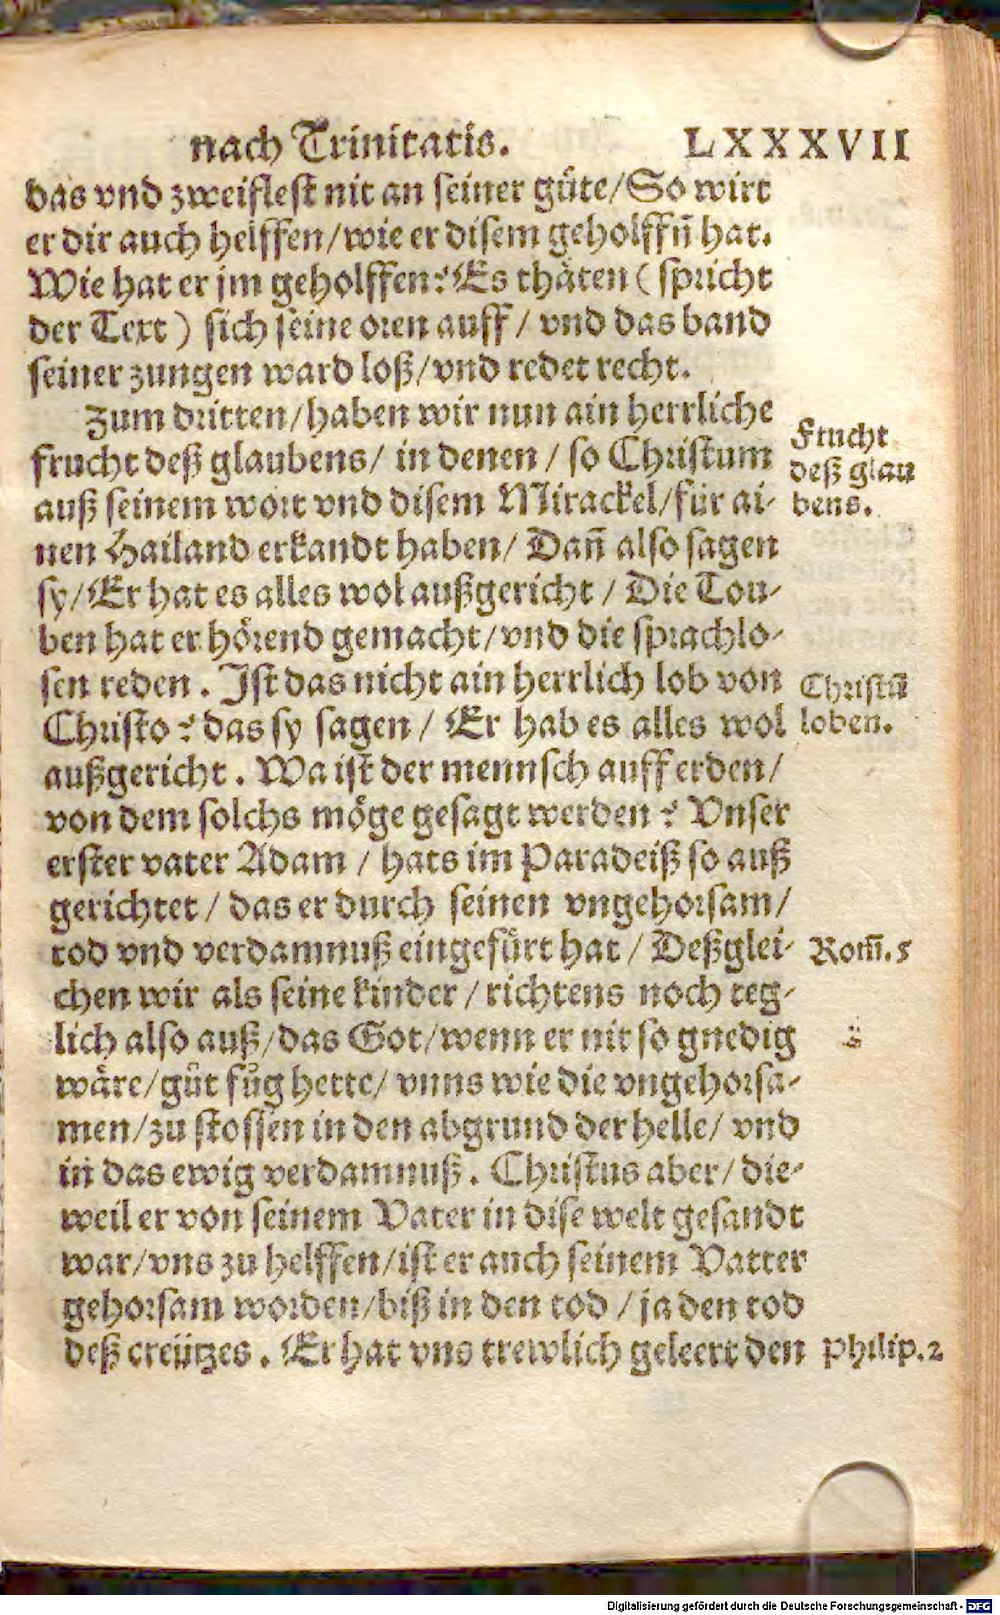 nach Trinitatis. LXXXVII
das vnd zweiflest nit an seiner gůte/So wirt
er dir auch helffen/wie er disem geholffñ hat.
Wie hat er jm geholffen? Es thäten ( spricht
der Text ) sich seine oren auff / vnd das band
seiner zungen ward loß/vnd redet recht.
Zum dritten/haben wir nun ain herrliche
frucht deß glaubens/ in denen / so Christum
auß seinem wort vnd disem Mirackel/für ai-
nen Hailand erkandt haben/ Dañ also sagen
sy/Er hat es alles wol außgericht / Die Tou-
ben hat er hörend gemacht/vnd die sprachlo-
sen reden . Ist das nicht ain herrlich lob von
Christo? das sy sagen / Er hab es alles wol
außgericht . Wa ist der mennsch auff erden/
von dem solchs möge gesagt werden? Vnser
erster vater Adam / hats im Paradeiß so auß
gerichtet / das er durch seinen vngehorsam/
tod vnd verdamnuß eingefürt hat / Deßglei-
chen wir als seine kinder / richtens noch teg-
lich also auß/das Got/wenn er nit so gnedig
wäre/gůt fůg hette/ vnns wie die vngehorsa-
men/zu stossen in den abgrund der helle/ vnd
in das ewig verdamnuß . Christus aber/ die-
weil er von seinem Vater in dise welt gesandt
war/vns zu helffen/ist er auch seinem Vatter
gehorsam worden/biß in den tod / ja den tod
deß creützes . Er hat vns trewlich geleert den
Frucht
deß glau
bens.
Christũ
loben.
Rom̃.5
Philip.2
Digitalisierung gefördert durch die Deutsche Forschungsgemeinschaft - DFG